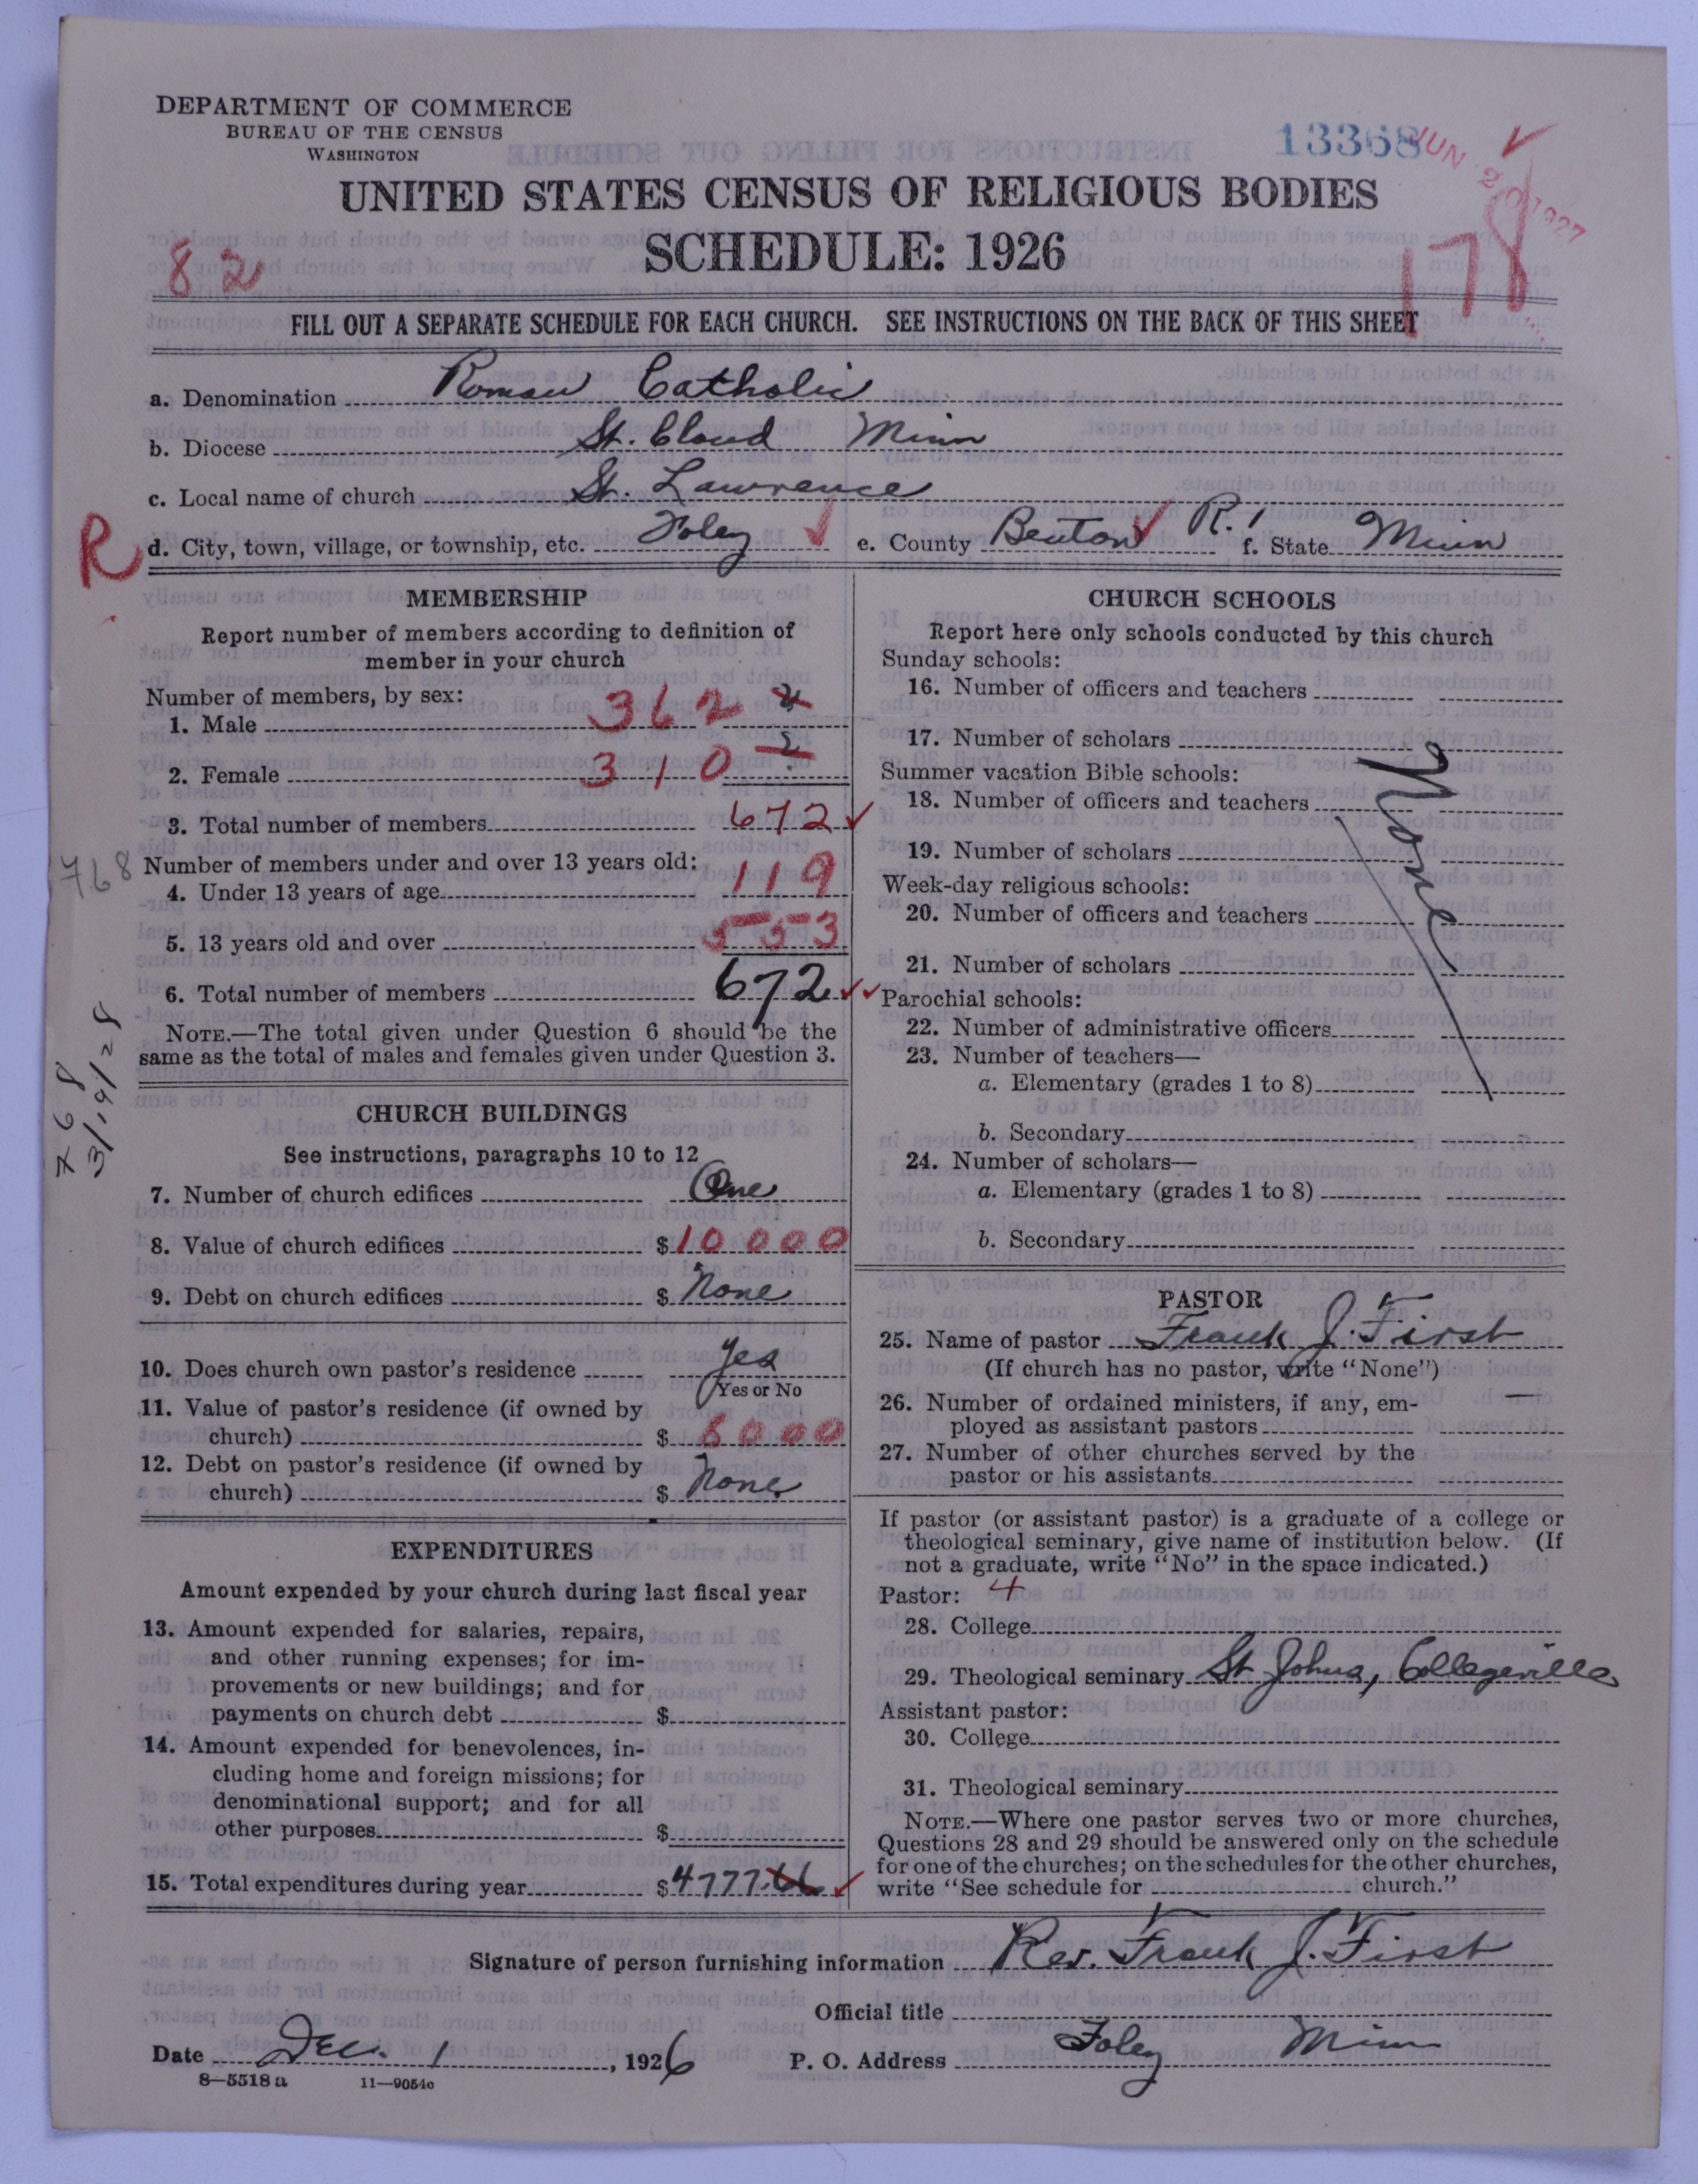 DEPARTMENT OF COMMERCE
BUREAU OF THE CENSUS
WASHINGTON
13368
JUN 20 1927
UNITED STATES CENSUS OF RELIGIOUS BODIES
SCHEDULE: 1926
82
178
FILL OUT A SEPARATE SCHEDULE FOR EACH CHURCH. SEE INSTRUCTIONS ON THE BACK OF THIS SHEET
a. Denomination Roman Catholic
b. Diocese St. Cloud Minn
c. Local name of church St. Lawrence
R d. City, town, village, or township, etc. Foley e. County Benton R. 1 f. State Minn
MEMBERSHIP
Report number of members according to definition of
member in your church
Number of members, by sex:
1. Male 362
2. Female 310
3. Total number of members 672
768
Number of members under and over 13 years old:
4. Under 13 years of age 119
5. 13 years old and over 553
6. Total number of members 672
NOTE.—The total given under Question 6 should be the
same as the total of males and females given under Question 3.
768
3/19/28
CHURCH BUILDINGS
See instructions, paragraphs 10 to 12
7. Number of church edifices One
8. Value of church edifices $10000
9. Debt on church edifices $ None
10. Does church own pastor's residence Yes
Yes or No
11. Value of pastor's residence (if owned by
church) $ 6000
12. Debt on pastor's residence (if owned by
church) $ None
EXPENDITURES
Amount expended by your church during last fiscal year
13. Amount expended for salaries, repairs,
and other running expenses; for im-
provements or new buildings; and for
payments on church debt $
14. Amount expended for benevolences, in-
cluding home and foreign missions; for
denominational support; and for all
other purposes $
15. Total expenditures during year $4777.66
CHURCH SCHOOLS
Report here only schools conducted by this church
Sunday schools:
16. Number of officers and teachers
17. Number of scholars
Summer vacation Bible schools:
18. Number of officers and teachers
None
19. Number of scholars
Week-day religious schools:
20. Number of officers and teachers
21. Number of scholars
Parochial schools:
22. Number of administrative officers
23. Number of teachers—
a. Elementary (grades 1 to 8)
b. Secondary
24. Number of scholars—
a. Elementary (grades 1 to 8)
b. Secondary
PASTOR
25. Name of pastor Frank J. First
(If church has no pastor, write "None")
26. Number of ordained ministers, if any, em-
ployed as assistant pastors —
27. Number of other churches served by the
pastor or his assistants
If pastor (or assistant pastor) is a graduate of a college or
theological seminary, give name of institution below. (If
not a graduate, write "No" in the space indicated.)
Pastor: 4
28. College
29. Theological seminary St Johns, Collegeville
Assistant pastor:
30. College
31. Theological seminary
NOTE.—Where one pastor serves two or more churches,
Questions 28 and 29 should be answered only on the schedule
for one of the churches; on the schedules for the other churches,
write "See schedule for church."
Signature of person furnishing information Rev. Frank J. First
Official title
Date Dec. 1, 1926 P. O. Address Foley Minn
8—5518 a 11—9054c